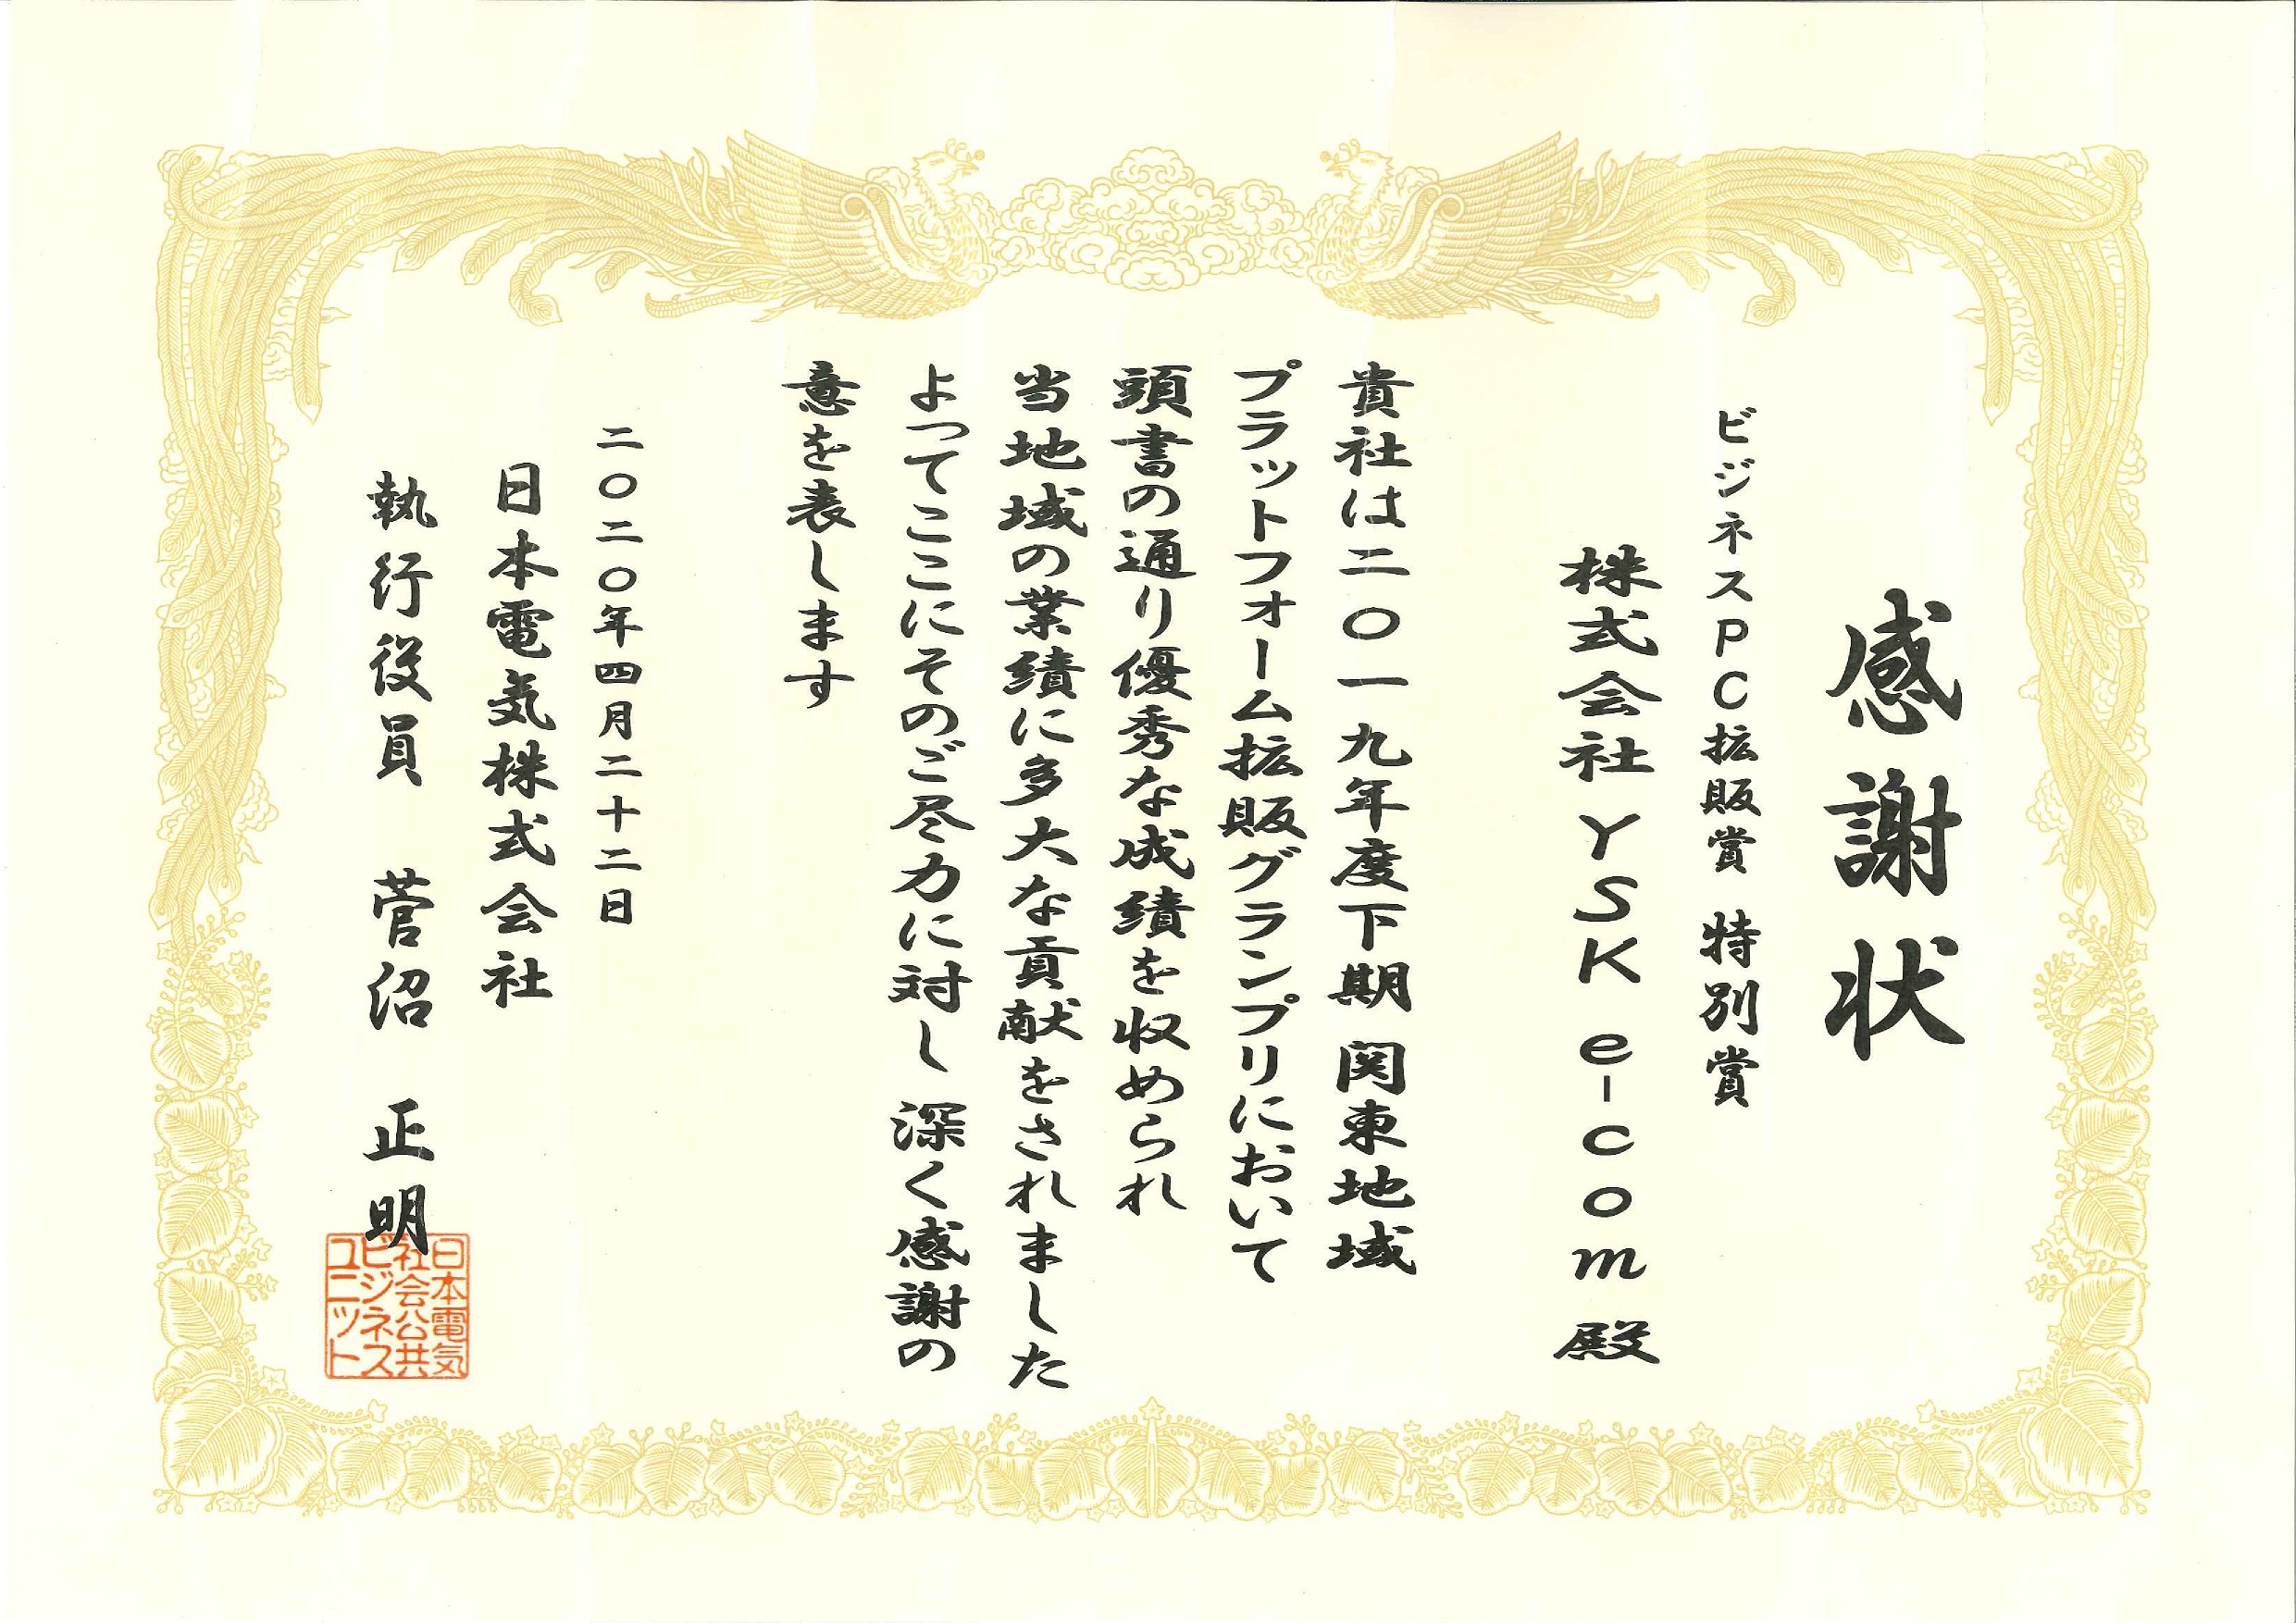 感謝状
ビジネスPC拡販賞 特別賞
株式会社YSK e-com 殿
貴社は二〇一九年度下期 関東地域
プラットフォーム拡販グランプリにおいて
頭書の通り優秀な成績を収められ
当地域の業績に多大な貢献をされました
よってここにそのご尽力に対し 深く感謝の
意を表します
二〇二〇年四月二十二日
日本電気株式会社
執行役員 菅沼 正明
日本電気
社会公共
ビジネス
ユニット